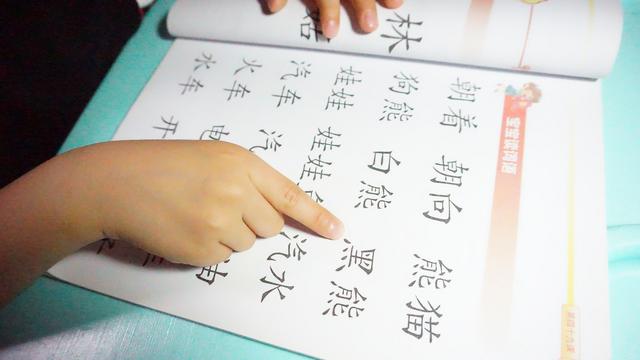 林
姑
宝宝读词语
朝着 朝向 熊猫
狗熊 白熊 黑熊
娃娃 娃娃
汽车 汽 汽水
火车 电 油
水车 开